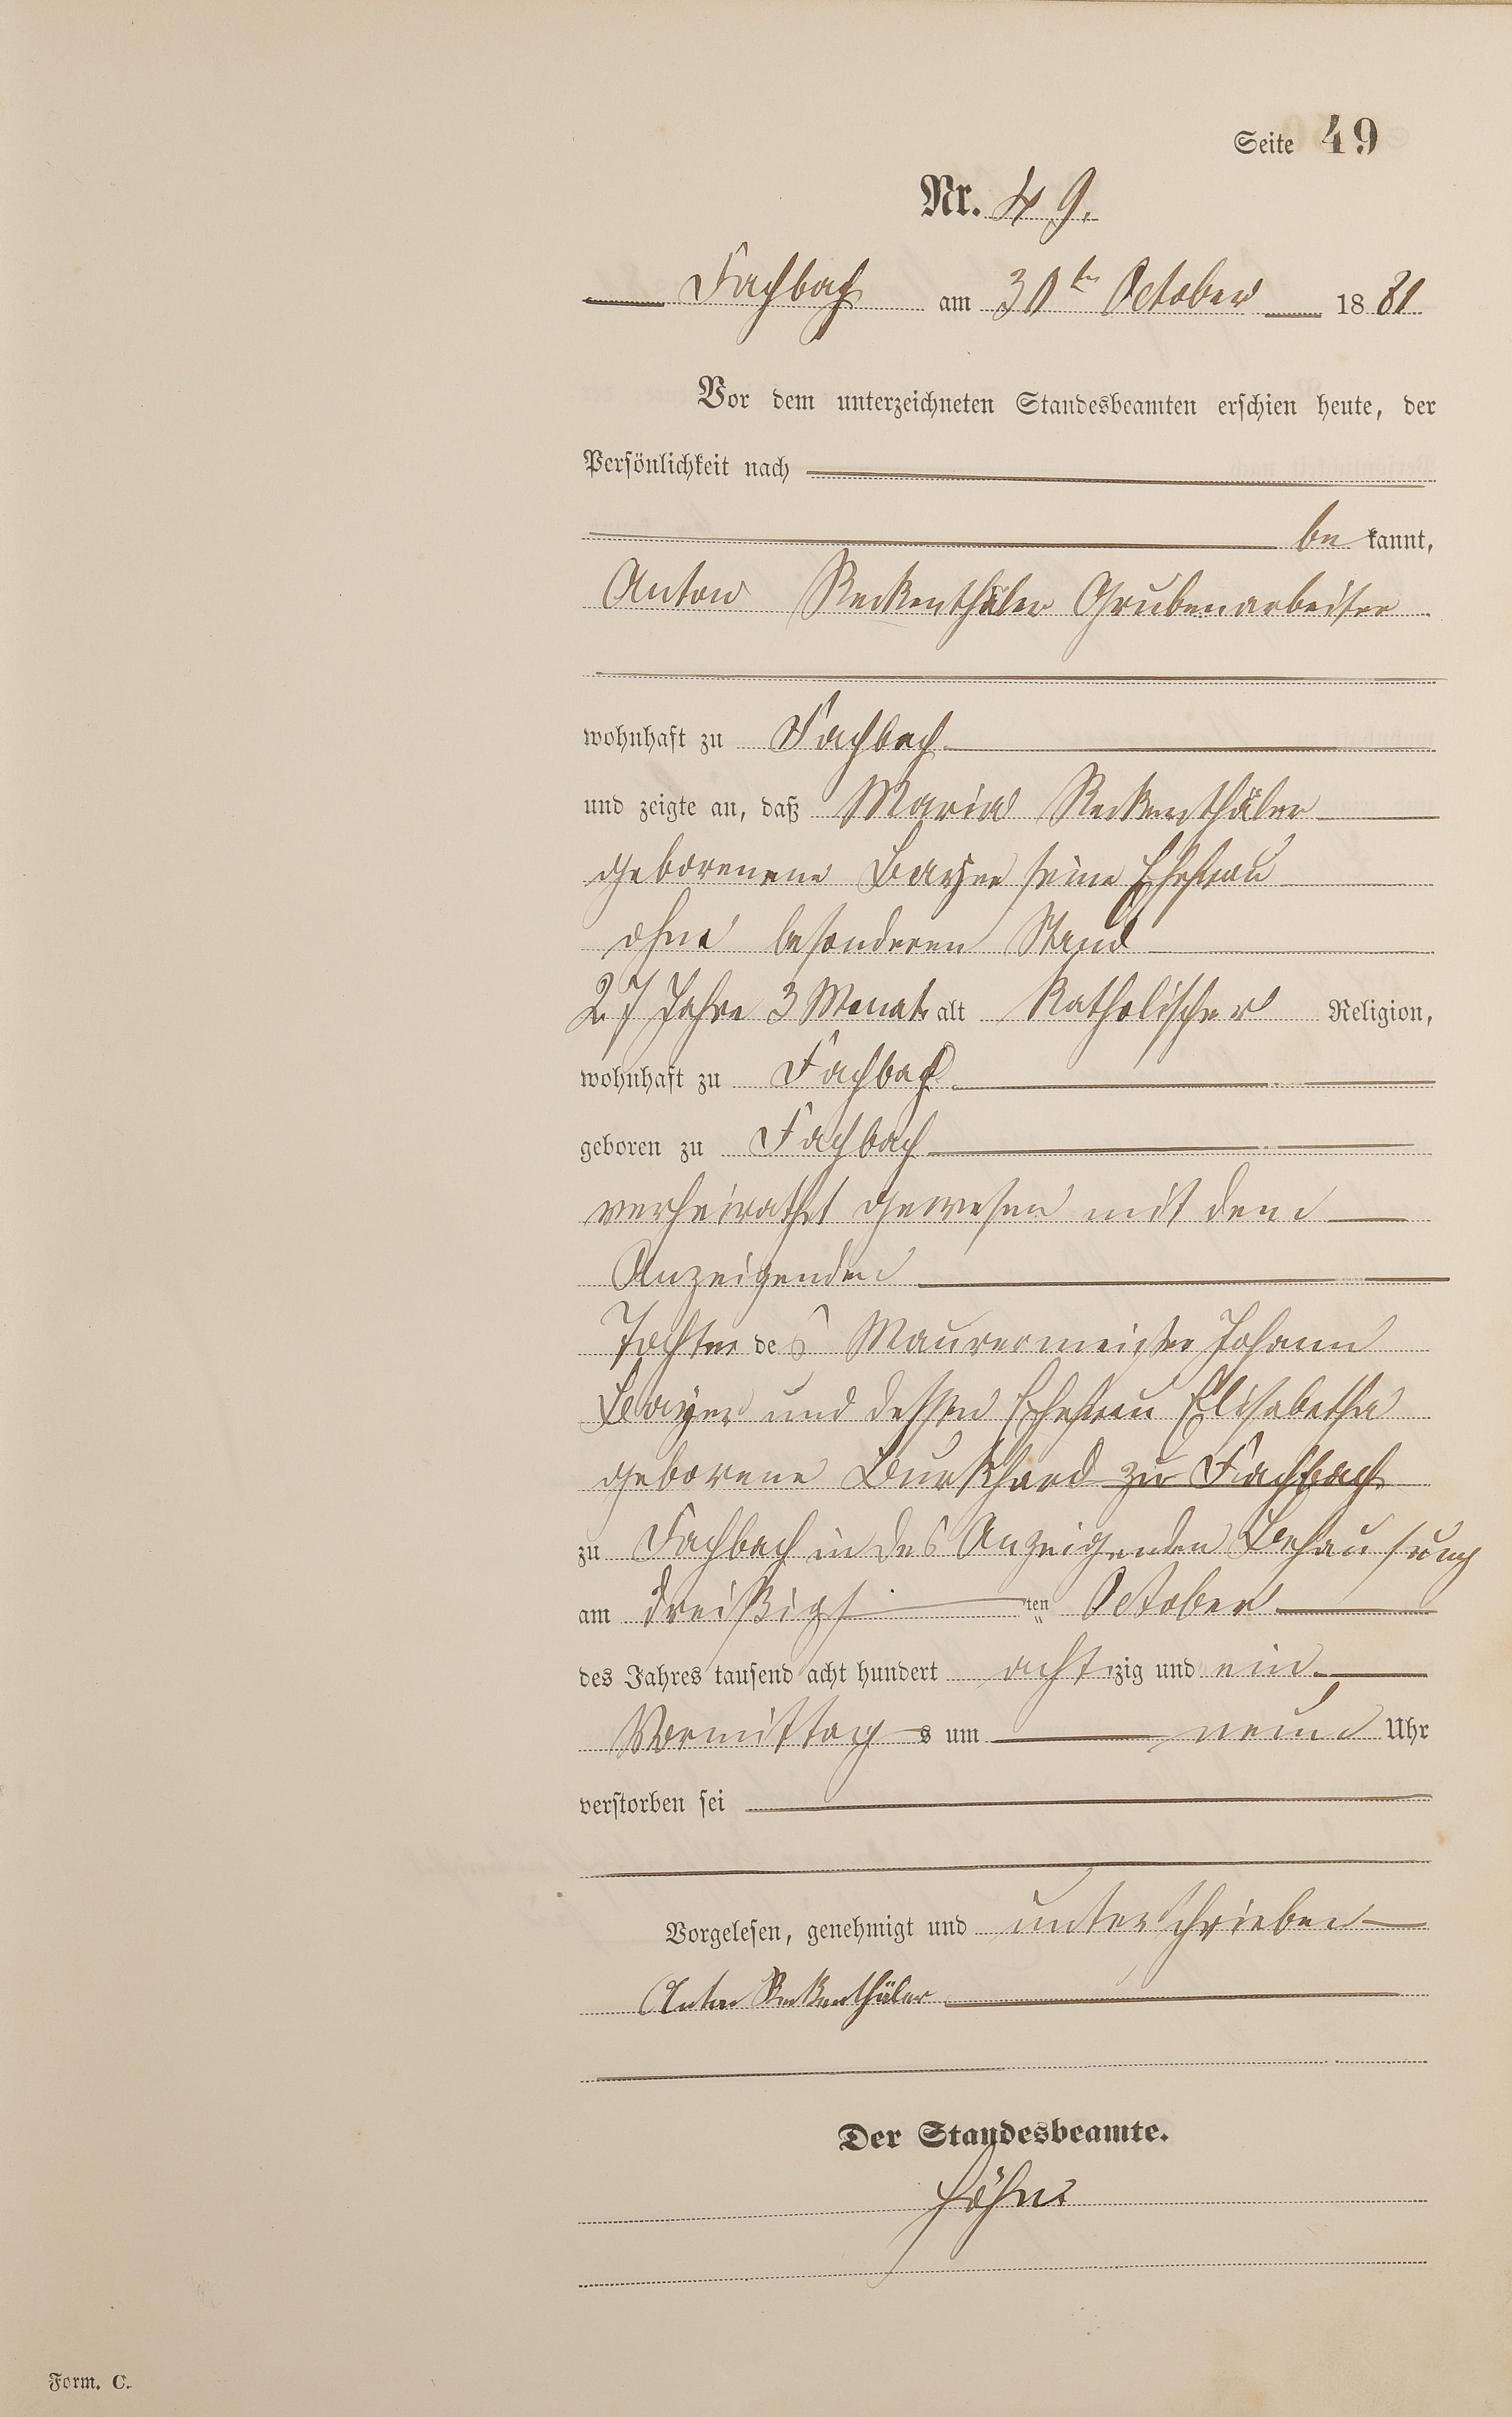 Seite 49
Nr. 49.
Fachbach am 30ten October 1881
Vor dem unterzeichneten Standesbeamten erschien heute, der
Persönlichkeit nach
be kannt,
Anton Reckenthäler Grubenarbeiter
wohnhaft zu Fachbach
und zeigte an, daß Maria Reckenthäler
geborenene Bayer seine Ehefrau
ohne besonderen Stand
27 Jahre 3 Monat alt Katholischer Religion,
wohnhaft zu Fachbach
geboren zu Fachbach
verheirathet gewesen mit dem
Anzeigenden
Tochter des Maurermeister Johann
Bayer und dessen Ehefrau Elisabetha
geborene Burkhard zu Fachbach
zu Fachbach in des Anzeigenden Behausung
am dreißigsten October
des Jahres tausend acht hundert achtzig und ein
Vormittags um neun Uhr
verstorben sei
Vorgelesen, genehmigt und unterschrieben
Anton Reckenthäler
Der Standesbeamte.
Höhn
Form. C.